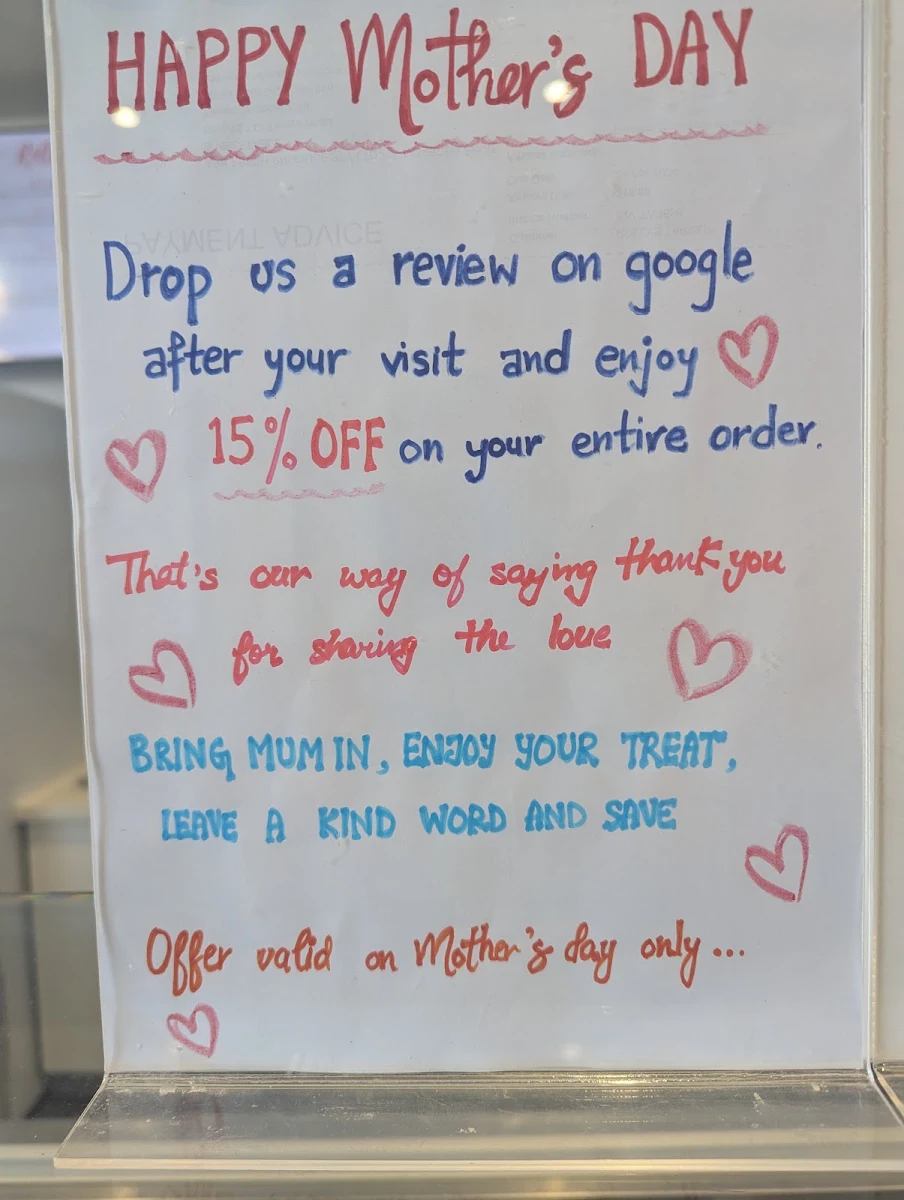 HAPPY Mother's DAY
PAYMENT ADVICE
Drop us a review on google
after your visit and enjoy
15% OFF on your entire order.
That's our way of saying thank you
for sharing the love
BRING MUM IN, ENJOY YOUR TREAT,
LEAVE A KIND WORD AND SAVE
Offer valid on Mother's day only...